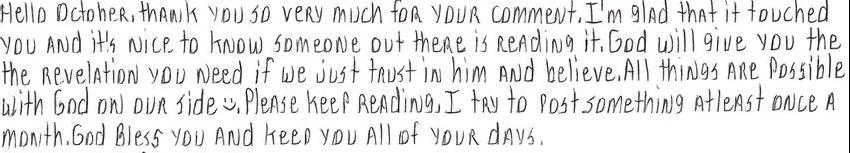 Hello October, thank you so very much for your comment. I'm glad that it touched
you and it's nice to know someone out there is reading it. God will give you the
the revelation you need if we just trust in him and believe. All things are possible
with God on our side ☺. Please keep reading, I try to post something atleast once a
month. God Bless you and keep you all of your days.